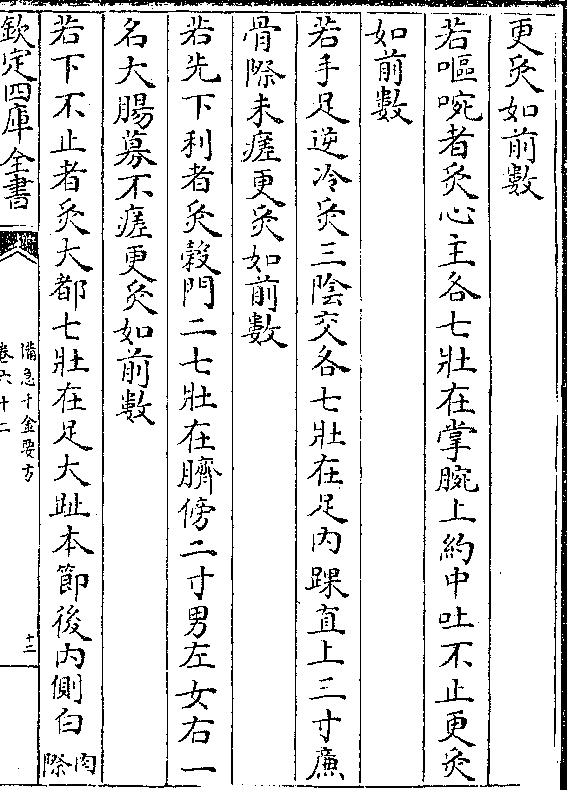 更灸如前數
若嘔啘者灸心主各七壯在掌腕上約中吐不止更灸
如前數
若手足逆冷灸三陰交各七壯在足内踝直上三寸廉
骨際未瘥更灸如前數
若先下利者灸穀門二七壯在臍傍二寸男左女右一
名大腸募不瘥更灸如前數
若下不止者灸大都七壯在足大趾本節後内側白肉際
欽定四庫全書
備急千金要方
卷六十二
十三